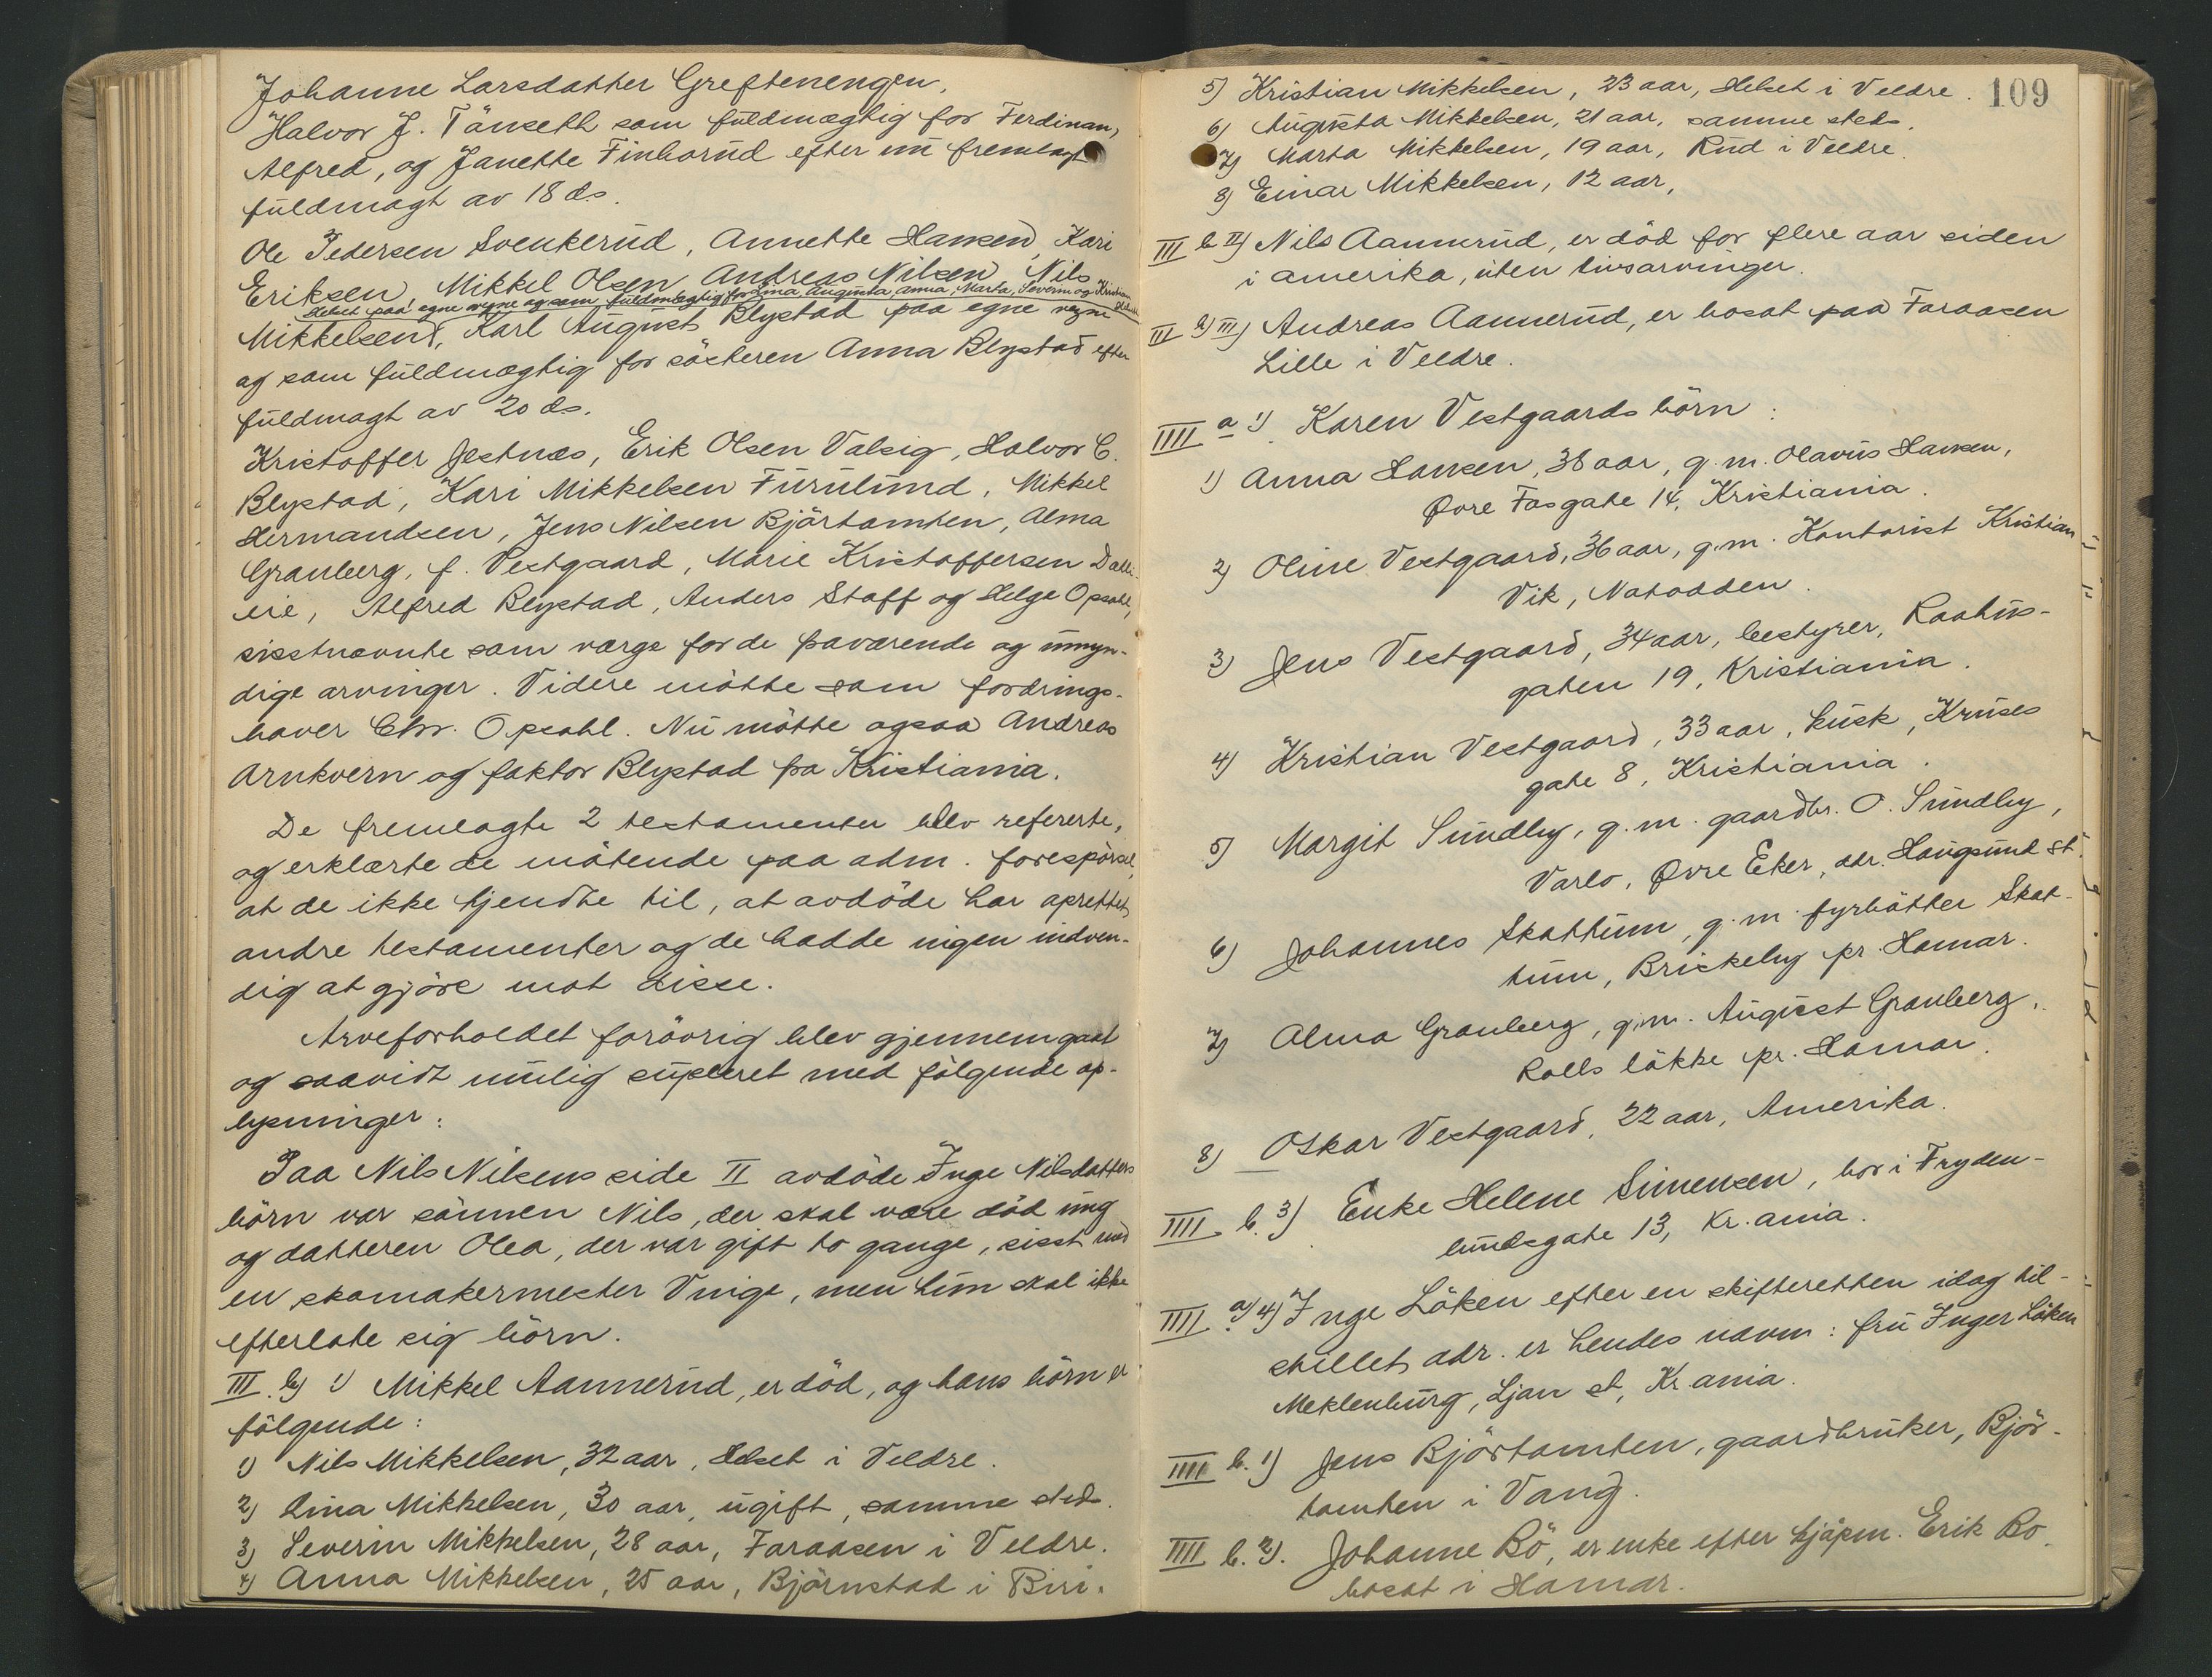 Johanne Larsdatter Greftenengen,
Halvor J. Tånseth som fuldmægtig for Ferdinan,
Alfred, og Janette Finborud efter nu fremlagt
fuldmagt av 18 ds.
Ole Pedersen Svenkerud, Annette Hansen, Kari
Eriksen, Mikkel Olsen, Andreas Nilsen, Nils
Helset paa egne vegne og som fuldmægtig for Lina, Augusta, Anna, Marta, Severin og Kristian
Mikkelsen, Karl August Blystad paa egne vegne
og som fuldmægtig for søsteren Anna Blystad efter
fuldmagt av 20 ds.
Kristoffer Jestnæs, Erik Olsen Valsig, Halvor C.
Blystad, Kari Mikkelsen Furulund, Mikkel
Hermandsen, Jens Nilsen Bjørtomten, Alma
Granberg, f. Vestgaard, Marie Kristoffersen
eie, Alfred Blystad, Anders Staff og Helge Opsahl,
sisstnævnte som verge for de fraværende og umyn-
dige arvinger. Videre møtte som fordrings-
haver Chr. Opsahl. Nu møtte ogsaa Andreas
Arnkvern og faktor Blystad fra Kristiania.
De fremlagte 2 testamenter blev refererte,
og erklærte de møtende paa adm. forespørsel,
at de ikke kjendte til, at avdøde har oprettet
andre testamenter og de hadde ingen indven-
dig at gjøre mot disse.
Arveforholdet forøvrig blev gjennemgaat
og saavidt mulig supleret med følgende op-
lysninger:
Paa Nils Nilsens side II avdøde Inge Nilsdatters
børn var sønnen Nils, der skal være død ung
og datteren Olea, der var gift to gange, sisst med
en skomakermester Unige, men hun skal ikke
efterlate sig børn.
III. b) 1) Mikkel Aannerud, er død, og hans børn er
følgende:
1) Nils Mikkelsen, 32 aar, Helset i Veldre.
2) Lina Mikkelsen, 30 aar, ugift, samme sted.
3) Severin Mikkelsen, 28 aar, Faraasen i Veldre.
4) Anna Mikkelsen, 25 aar, Bjørnstad i Biri.
109
5) Kristian Mikkelsen, 23 aar, Helset i Veldre.
6) Augusta Mikkelsen, 21 aar, samme sted.
7) Marta Mikkelsen, 19 aar, Rud i Veldre.
8) Einar Mikkelsen, 12 aar,
III b II) Nils Aannerud, er død for flere aar siden
i Amerika, uten livsarvinger.
III b) III) Andreas Aannerud, er bosat paa Faraasen
Lille i Veldre.
IIII a 1) Karen Vestgaards børn:
1) Anna Hansen, 38 aar, g. m. Olavus Hansen,
Øvre Fosgate 14, Kristiania.
2) Oline Vestgaard, 36 aar, g. m. Kontorist Kristian
Vik, Notodden.
3) Jens Vestgaard, 34 aar, bestyrer, Raahus-
gaten 19, Kristiania.
4) Kristian Vestgaard, 33 aar, kusk, Kruses
gate 8, Kristiania.
5) Margit Sundby, g. m. gaardbr. O. Sundby,
Varlo, Øvre Eker, adr. Haugsund st.
6) Johannes Skattum, g. m. fyrbøtter Skat-
tum, Briskeby pr. Hamar.
7) Alma Granberg, g. m. August Granberg,
Rolls løkke pr. Hamar.
8) Oskar Vestgaard, 22 aar, Amerika.
IIII b. 3) Enke Helene Simensen, bor i Fryden-
lundsgate 13, Kr.ania.
IIII a) 4) Inge Løken efter en skifteretten idag til-
stillet adr. er hendes navn: fru Inger Løken
Meklenburg, Ljan st, Kr ania.
IIII b. 1) Jens Bjørtomten, gaardbruker, Bjør-
tomten i Vang.
IIII b. 2). Johanne Bø, er enke efter kjøpm. Erik Bo.
bosat i Hamar.